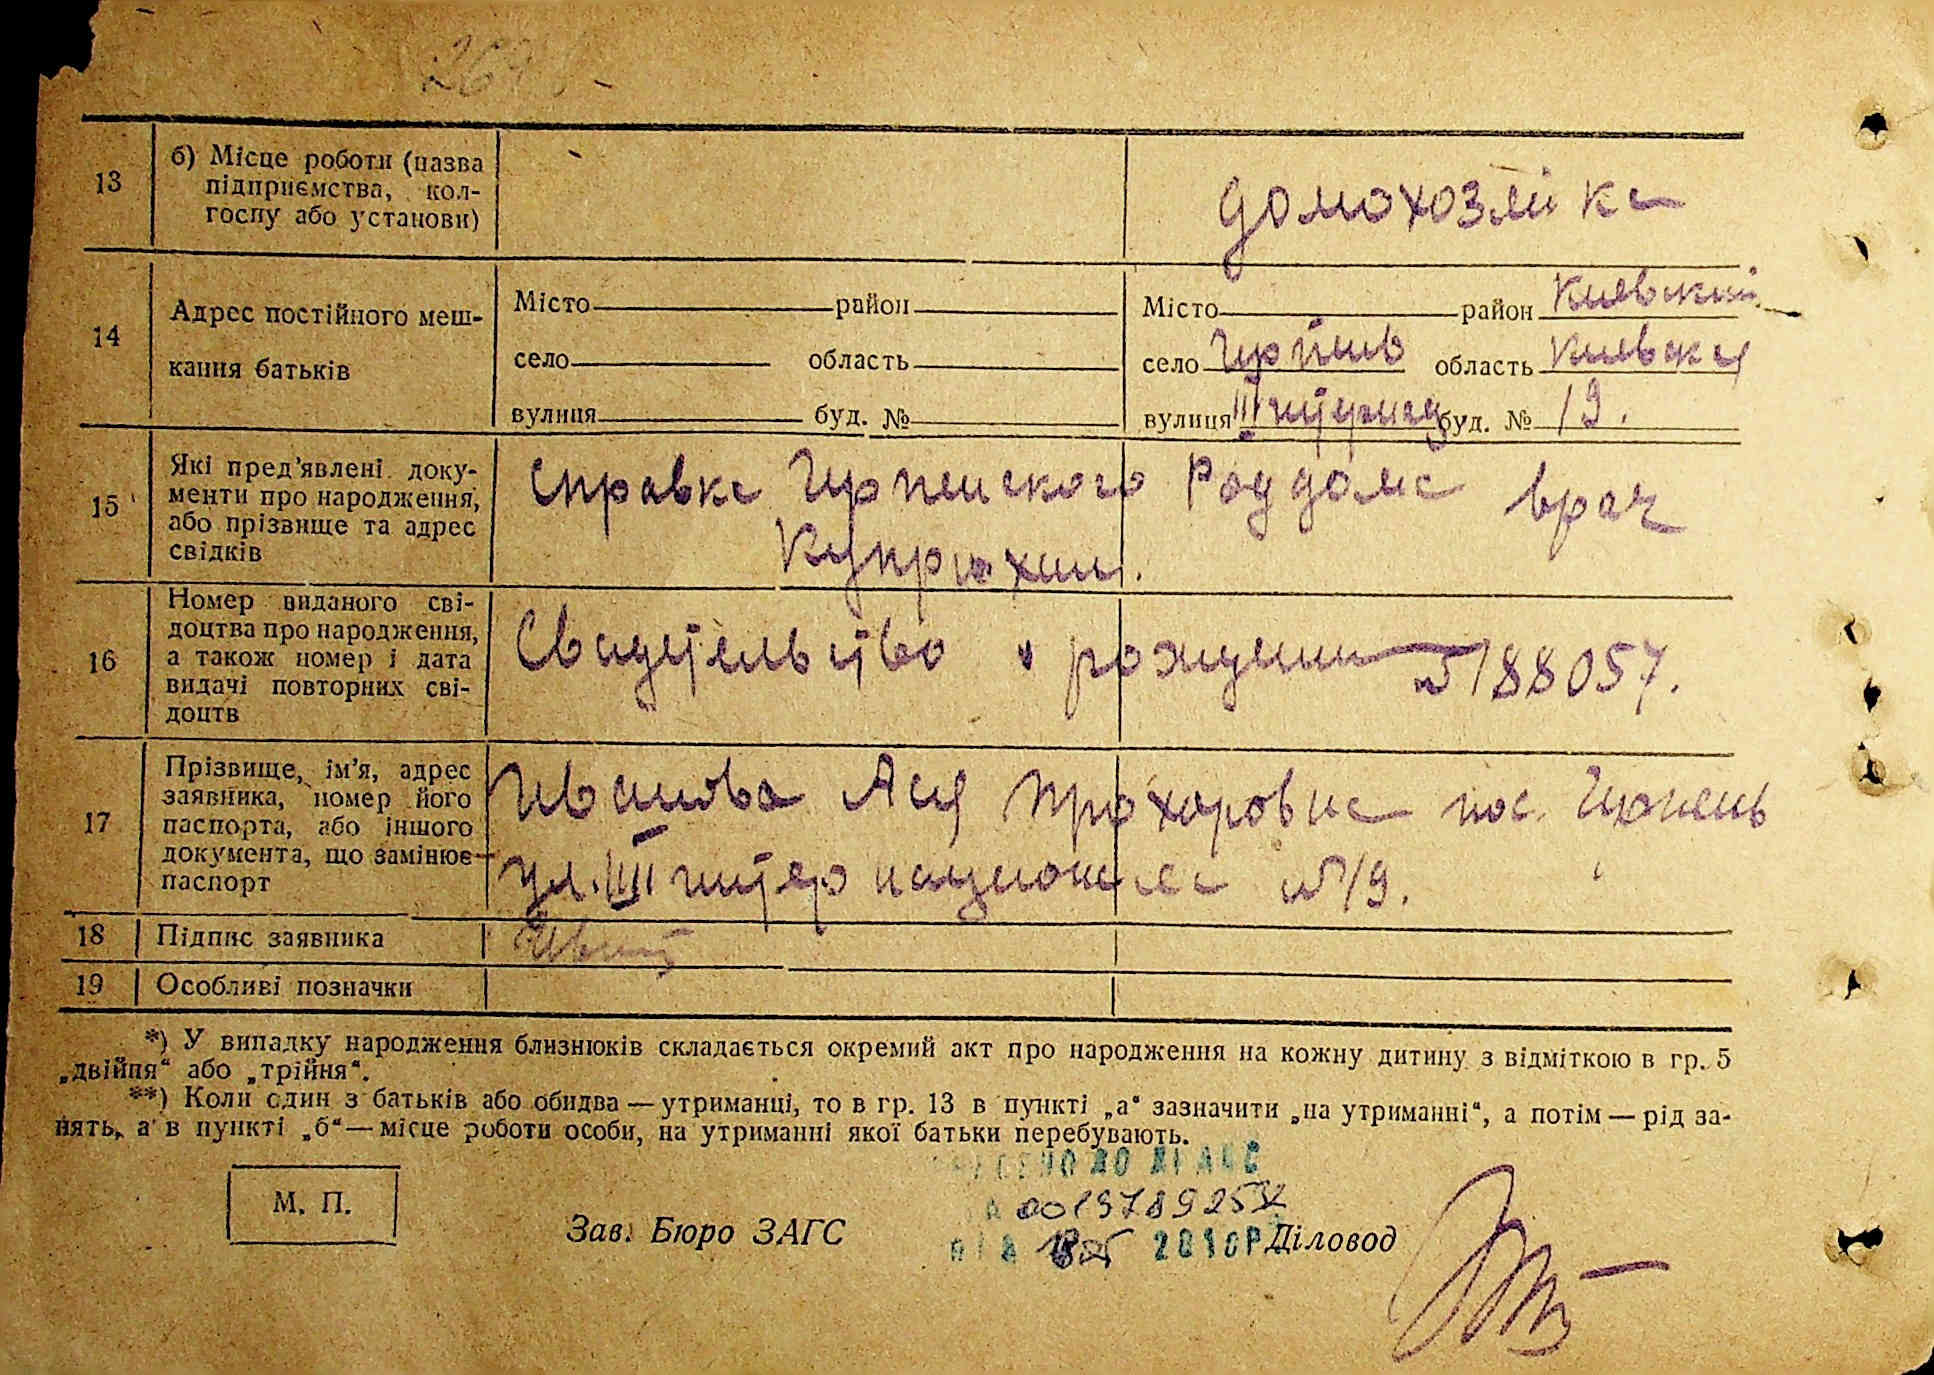 13
б) Місце роботи (назва
підприємства, кол-
госпу або установи)
домохозяйка
14
Адрес постійного меш-
кання батьків
Місто район
село область
вулиця буд. №
Місто район Киевский
село Ирпінь область Киевская
вулиця III интернац буд. № 19.
15
Які пред'явлені доку-
менти про народження,
або прізвище та адрес
свідків
Справка Ирпенского Роддома врач
Купрюхин.
16
Номер виданого сві-
доцтва про народження,
а також номер і дата
видачі повторних сві-
доцтв
Свидетельство о рождении 5188057.
17
Прізвище, ім'я, адрес
заявника, номер його
паспорта, або іншого
документа, що замінює
паспорт
Иванова Ася Прохоровна пос. Ирпень
ул. III интернационала № 19.
18 Підпис заявника
19 Особливі позначки
*) У випадку народження близнюків складається окремий акт про народження на кожну дитину з відміткою в гр. 5
„двійня“ або „трійня“.
**) Коли один з батьків або обидва — утриманці, то в гр. 13 в пункті „а“ зазначити „на утриманні“, а потім — рід за-
нять, а в пункті „б“ — місце роботи особи, на утриманні якої батьки перебувають.
ДО ДРАЦС
М. П.
Зав. Бюро ЗАГС
Діловод